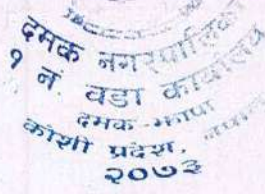 दमक नगरपालिका
१ नं. वडा कार्यालय
दमक-झापा
कोशी प्रदेश, नेपाल
२०७३